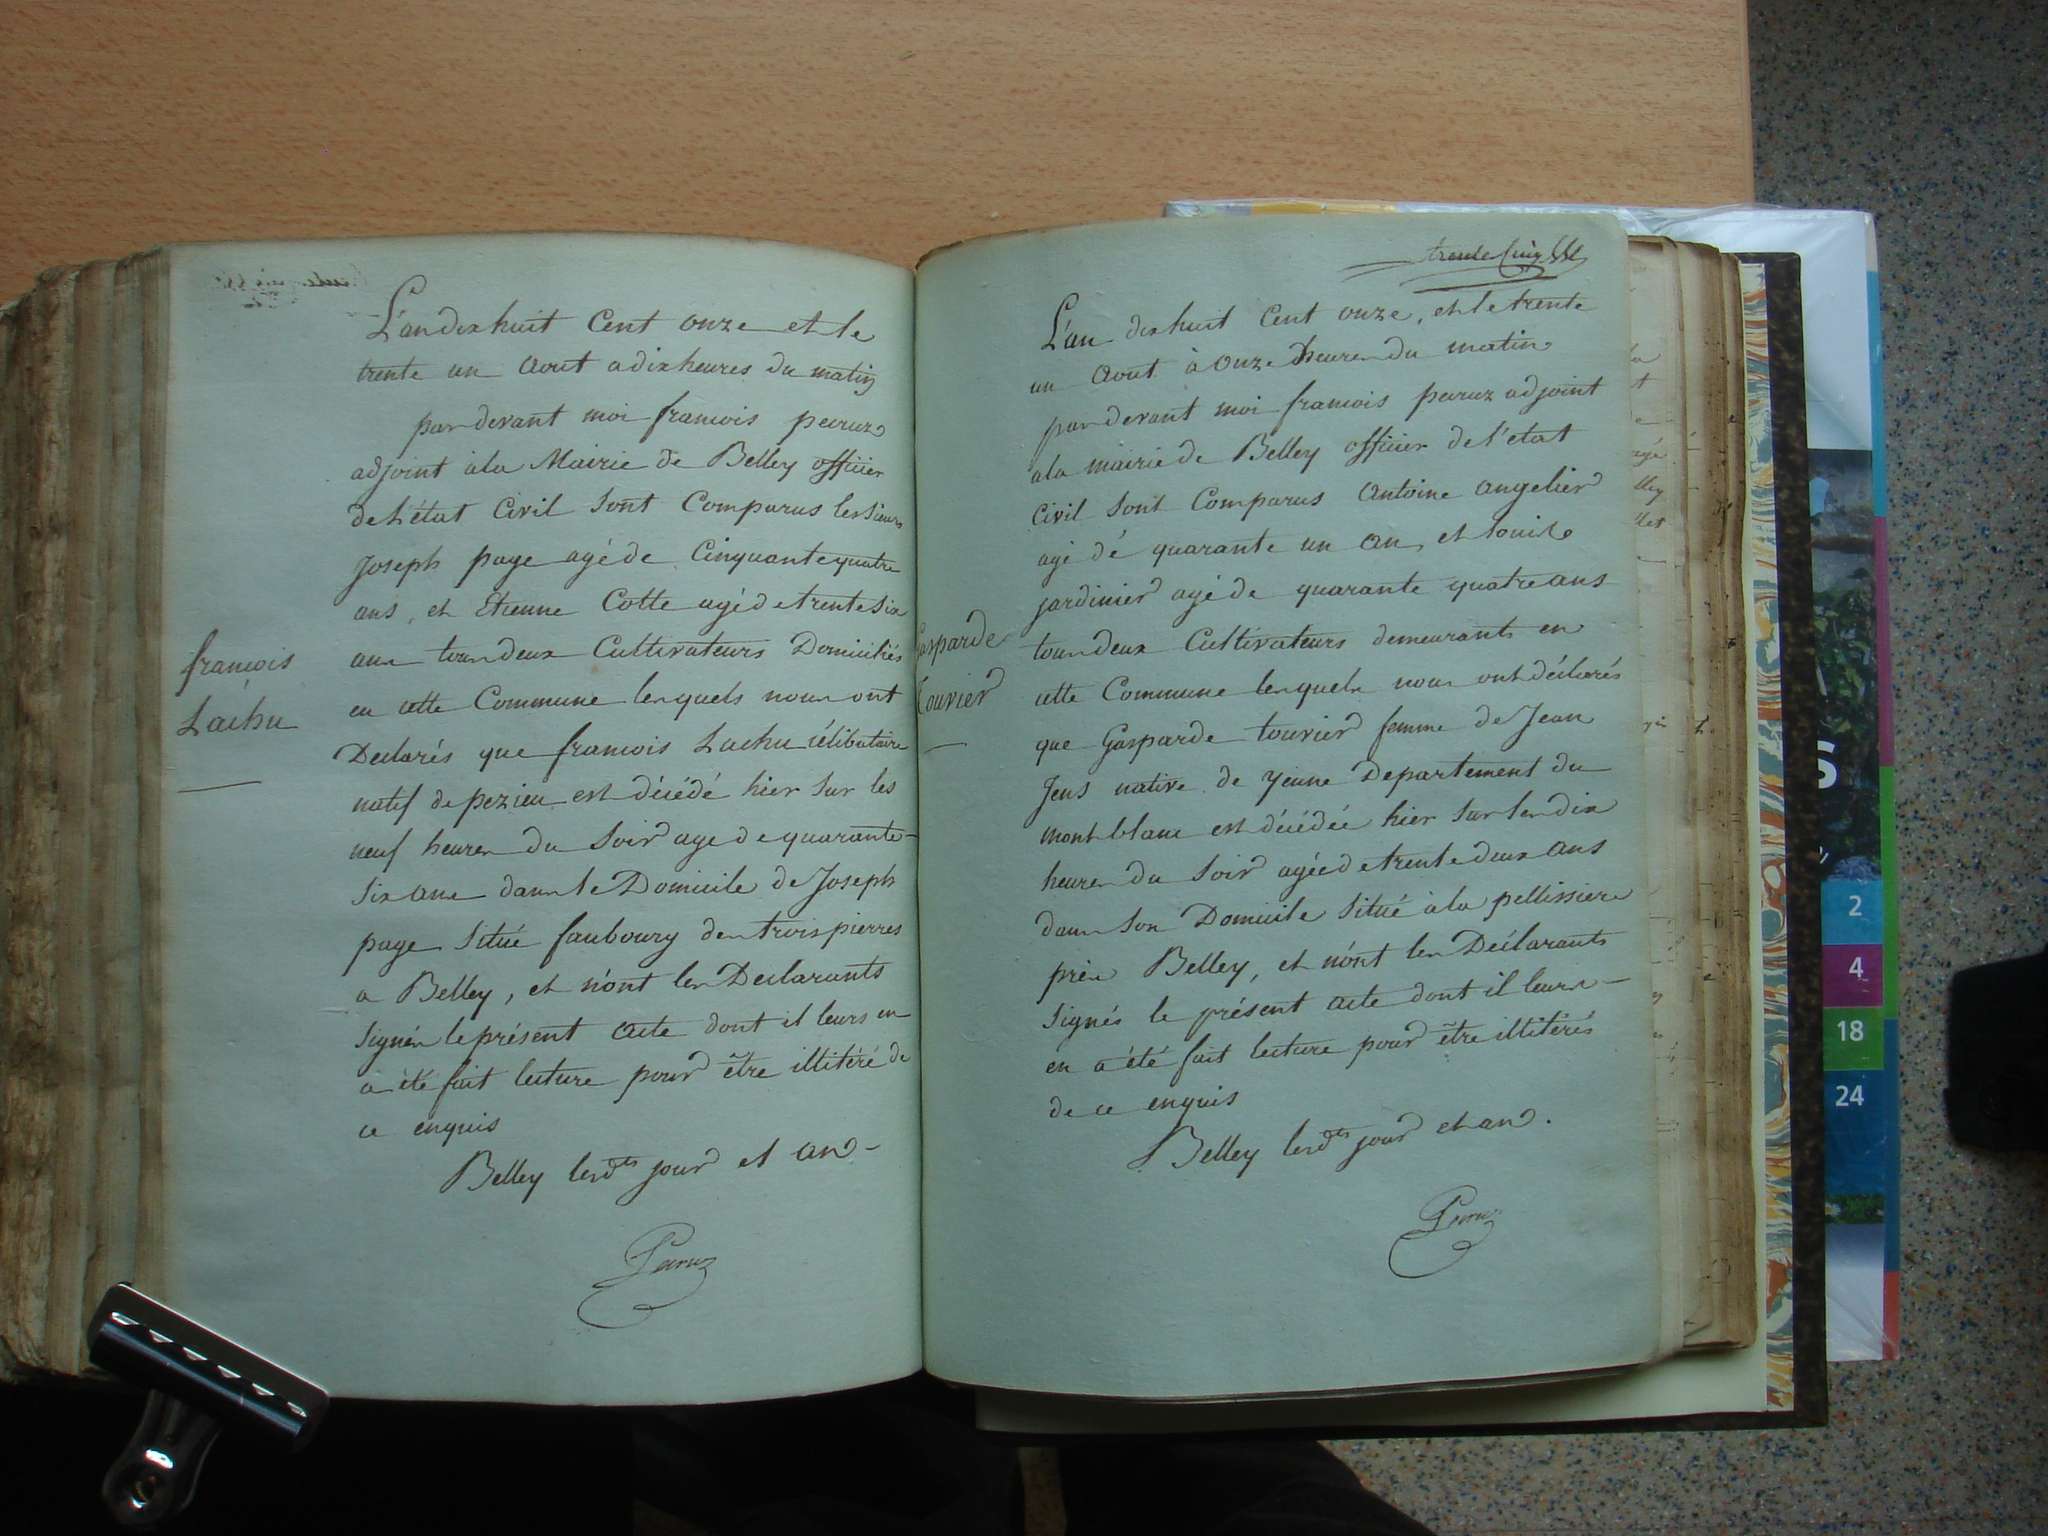 L'an dix huit Cent onze et le
trente un Aout a dix heures du matin
par devant moi francois peruz
adjoint à la Mairie de Belley officier
de L'état Civil sont Comparus les sieurs
Joseph page agé de Cinquante quatre
ans, et Etienne Cotte agé de trente six
ans tous deux Cultivateurs Domiciliés
en cette Commune lesquels nous ont
Declarés que francois Lachu célibataire
natif de pezieu est décédé hier sur les
neuf heures du soir age de quarante-
six ans dans le Domicile de Joseph
page situé faubourg des trois pierres
a Belley, et n'ont les Declarants
signés le présent acte dont il leurs en
a été fait lecture pour être illitéré de
ce enquis
Belley lesdts jour et an-
Peruz
francois
Lachu
trente Cinq
L'an dix huit Cent onze, et le trente
un Aout à onze heures du matin
par devant moi francois peruz adjoint
a la mairie de Belley officier de l'etat
Civil sont Comparus Antoine Angelier
agé de quarante un an, et Louis
jardinier agé de quarante quatre ans
tous deux Cultivateurs demeurants en
cette Commune lesquels nous ont déclarés
que Gasparde touvier femme de Jean
Jens native de yenne Departement du
mont blanc est décédée hier sur les dix
heures du soir agée de trente deux ans
dans son Domicile situé à la pellissiere
près Belley, et n'ont les Déclarants
signés le présent acte dont il leurs-
en a été fait lecture pour être illitérés
de ce enquis
Belley lesdts jour et an.
Peruz
Gasparde
touvier
S
2
4
18
24